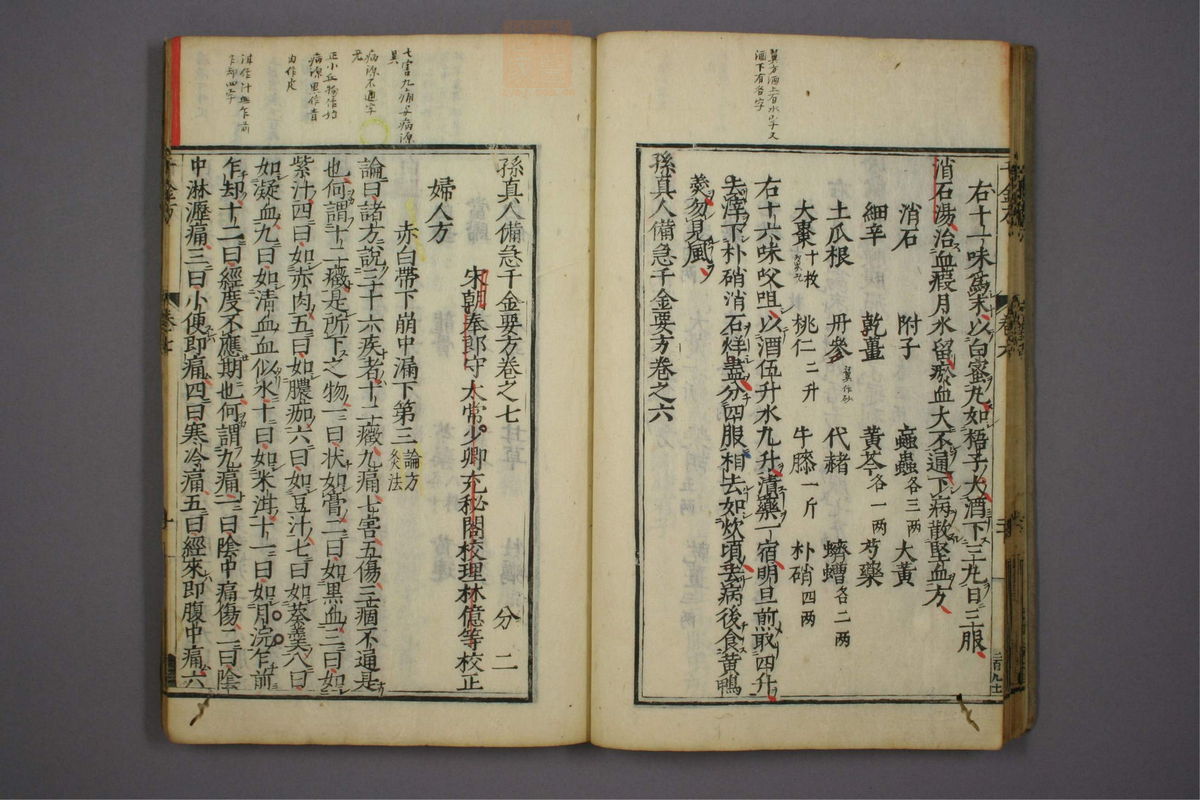 右十一味爲末以白蜜丸如梧子大酒下三丸日三服
消石湯治血瘕月水留瘀血大不通下病散堅血方
消石 附子 蝱蟲各三兩 大黃
細辛 乾薑 黃芩各一兩 芍藥
土瓜根 丹參 代赭 蠐螬各二兩
大棗十枚 桃仁二升 牛膝一斤 朴硝四兩
右十六味㕮咀以酒伍升水九升漬藥一宿明旦煎取四升
去滓下朴硝消石烊盡分四服相去如炊頃去病後食黃鴨
羹勿見風
孫真人備急千金要方卷之六
翼方酒上有水字又
酒下有各字
翼作砂
孫真人備急千金要方卷之七 分二
宋朝奉郎守太常少卿充秘閣校理林億等校正
婦人方
赤白帶下崩中漏下第三 論方 灸法
論曰諸方說三十六疾者十二癥九痛七害五傷三痼不通是
也何謂十二癥是所下之物一曰狀如膏二曰如黑血三曰如
紫汁四曰如赤肉五曰如膿痂六曰如豆汁七曰如葵羹八曰
如凝血九曰如清血血似水十曰如米泔十一曰如月浣乍前
乍却十二曰經度不應期也何謂九痛一曰陰中痛傷二曰陰
中淋瀝痛三曰小便即痛四曰寒冷痛五曰經來即腹中痛六
七害九痛與病源
異
病源不通字
病源黑作青
肉作皮
乍却四字